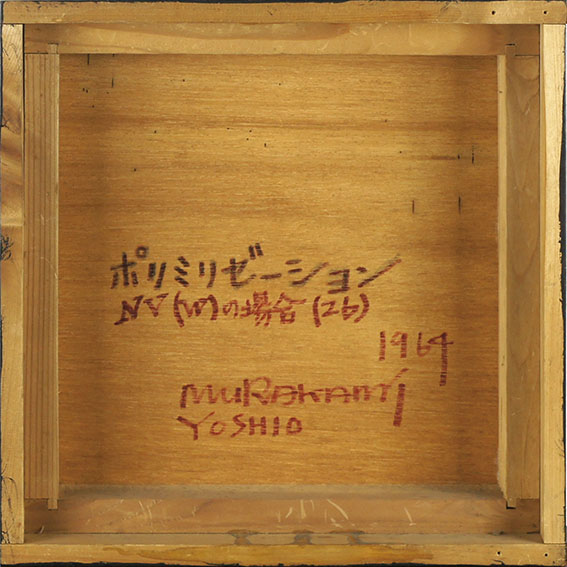 ポリミリゼーション
NN (M)の場合 (26)
1964
MURAKAMI
YOSHIO